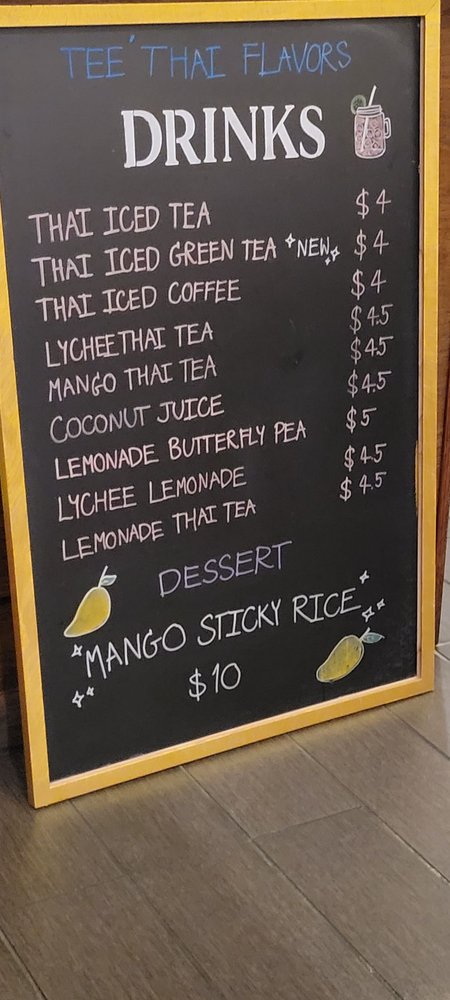 TEE' THAI FLAVORS
DRINKS
THAI ICED TEA $4
THAI ICED GREEN TEA NEW $4
THAI ICED COFFEE $4
LYCHEE THAI TEA $4.5
MANGO THAI TEA $4.5
COCONUT JUICE $4.5
LEMONADE BUTTERFLY PEA $5
LYCHEE LEMONADE $4.5
LEMONADE THAI TEA $4.5
DESSERT
MANGO STICKY RICE
$10